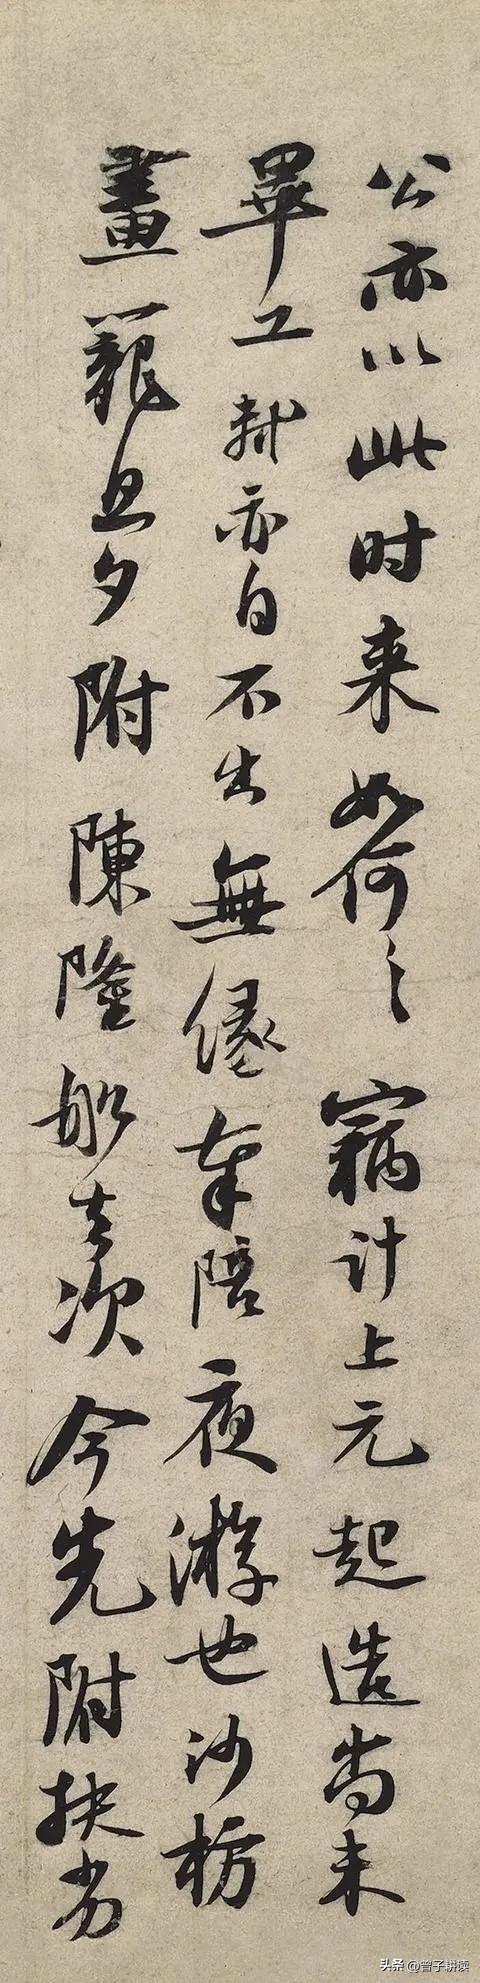 公亦以此时来如何〻竊計上元起造尚未
畢工軾亦自不出無緣奉陪夜游也沙枋
畫籠旦夕附陳隆船去次今先附扶劣
头条 @曾子耕读